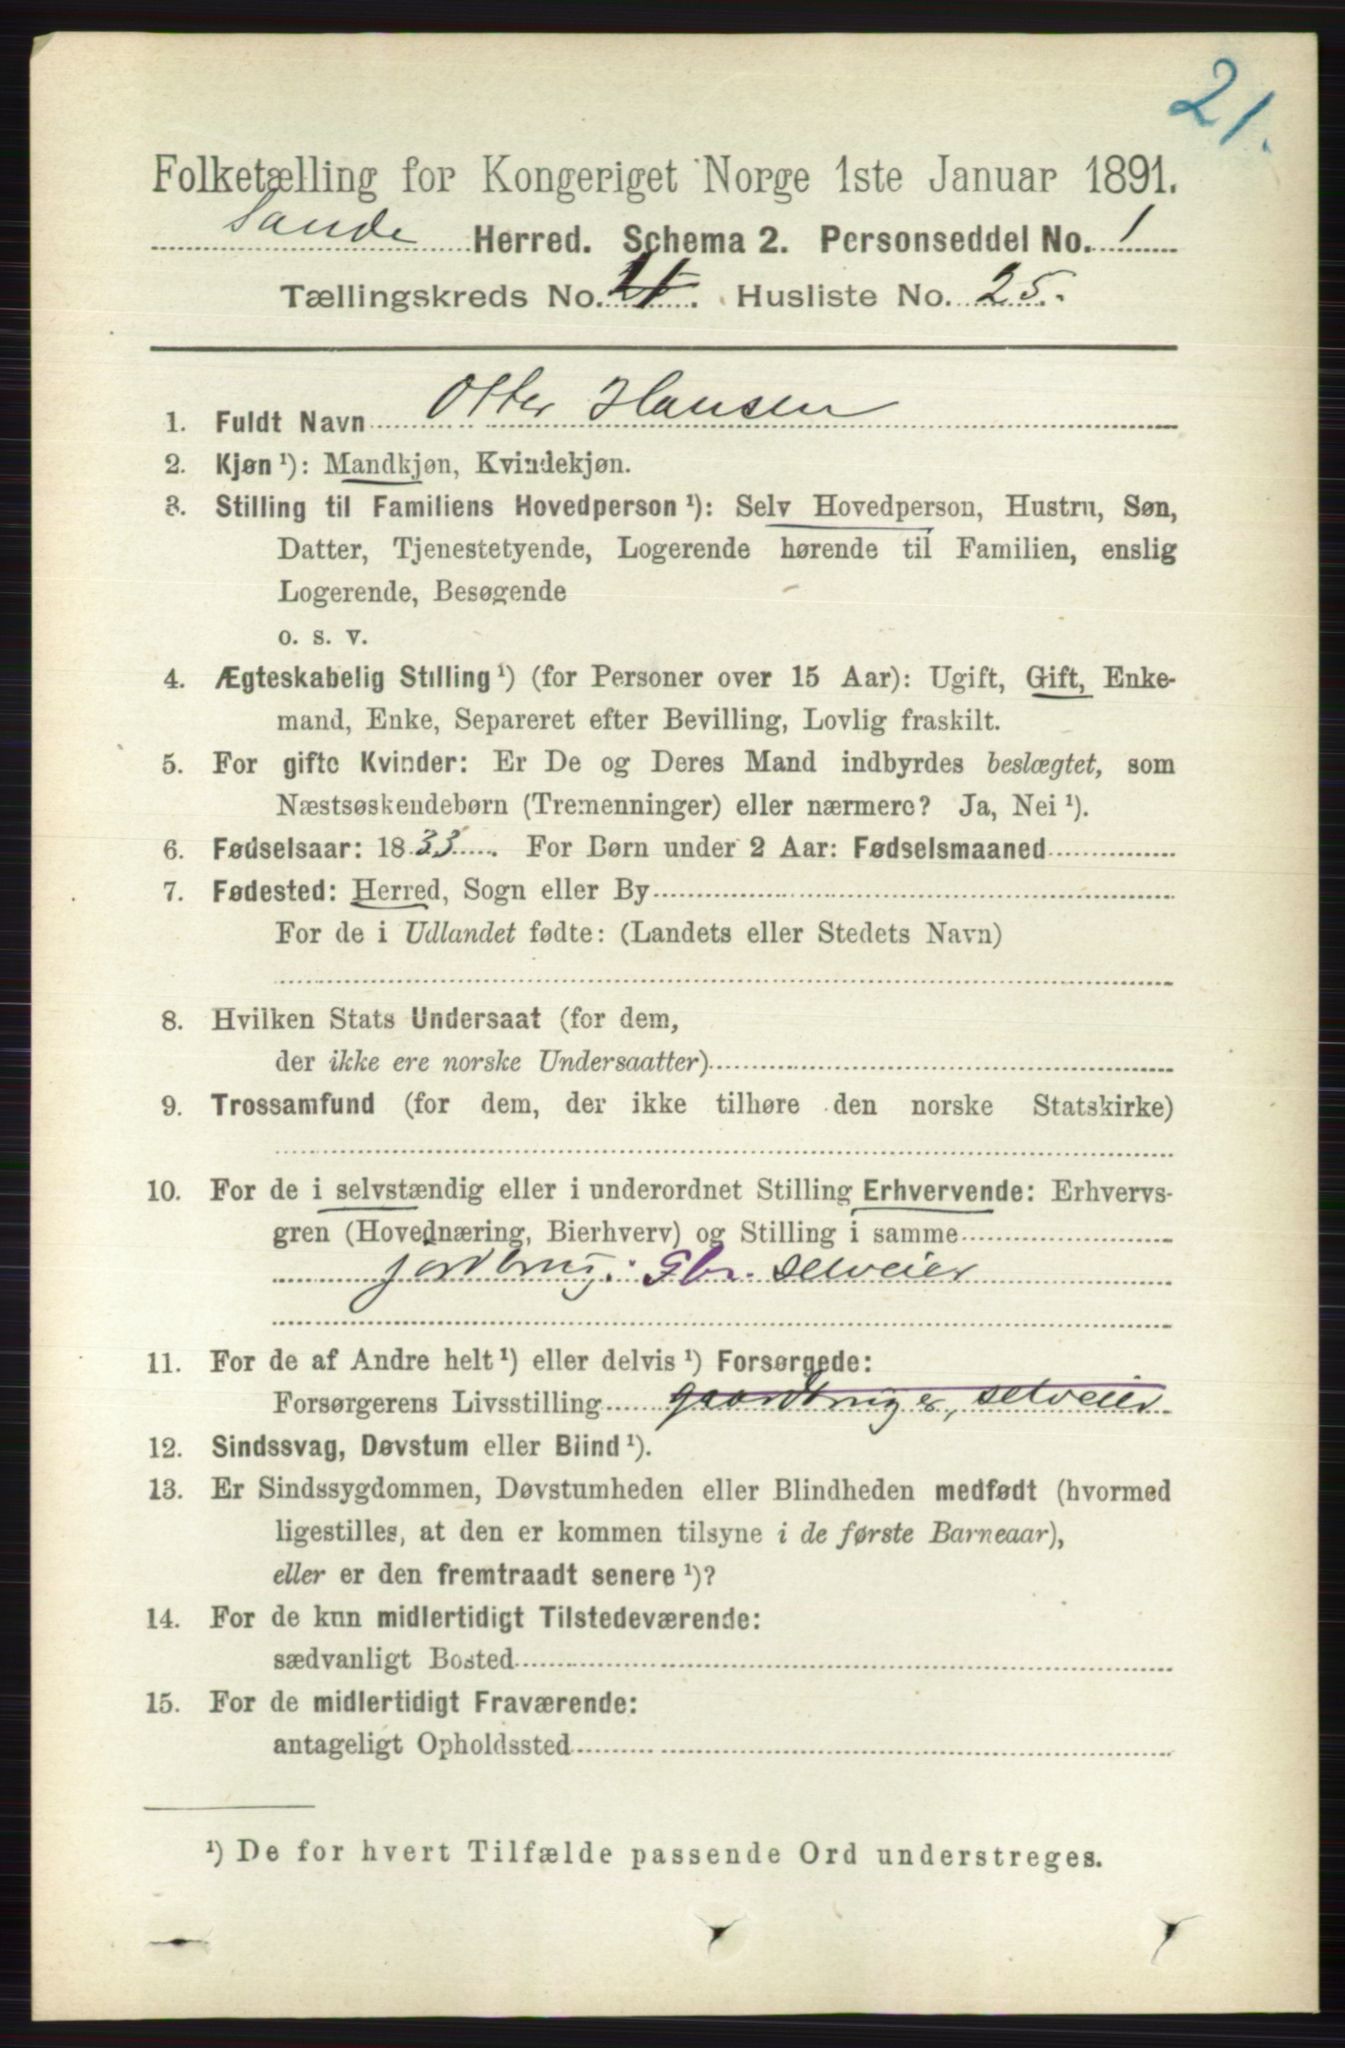 21.
Folketælling for Kongeriget Norge 1ste Januar 1891.
Sande Herred. Schema 2. Personseddel No. 1
Tællingskreds No. 4. Husliste No. 25.
1. Fuldt Navn Otter Hansen
2. Kjøn ¹): Mandkjøn, Kvindekjøn.
3. Stilling til Familiens Hovedperson ¹): Selv Hovedperson, Hustru, Søn,
Datter, Tjenestetyende, Logerende hørende til Familien, enslig
Logerende, Besøgende
o. s. v.
4. Ægteskabelig Stilling ¹) (for Personer over 15 Aar): Ugift, Gift, Enke-
mand, Enke, Separeret efter Bevilling, Lovlig fraskilt.
5. For gifte Kvinder: Er De og Deres Mand indbyrdes beslægtet, som
Næstsøskendebørn (Tremenninger) eller nærmere? Ja, Nei ¹).
6. Fødselsaar: 1833. For Børn under 2 Aar: Fødselsmaaned
7. Fødested: Herred, Sogn eller By
For de i Udlandet fødte: (Landets eller Stedets Navn)
8. Hvilken Stats Undersaat (for dem,
der ikke ere norske Undersaatter)
9. Trossamfund (for dem, der ikke tilhøre den norske Statskirke)
10. For de i selvstændig eller i underordnet Stilling Erhvervende: Erhvervs-
gren (Hovednæring, Bierhverv) og Stilling i samme
jordbrug: Gbr. selveier
11. For de af Andre helt ¹) eller delvis ¹) Forsørgede:
Forsørgerens Livsstilling gaardbruger, selveier
12. Sindssvag, Døvstum eller Blind ¹).
13. Er Sindssygdommen, Døvstumheden eller Blindheden medfødt (hvormed
ligestilles, at den er kommen tilsyne i de første Barneaar),
eller er den fremtraadt senere ¹)?
14. For de kun midlertidigt Tilstedeværende:
sædvanligt Bosted
15. For de midlertidigt Fraværende:
antageligt Opholdssted
¹) De for hvert Tilfælde passende Ord understreges.